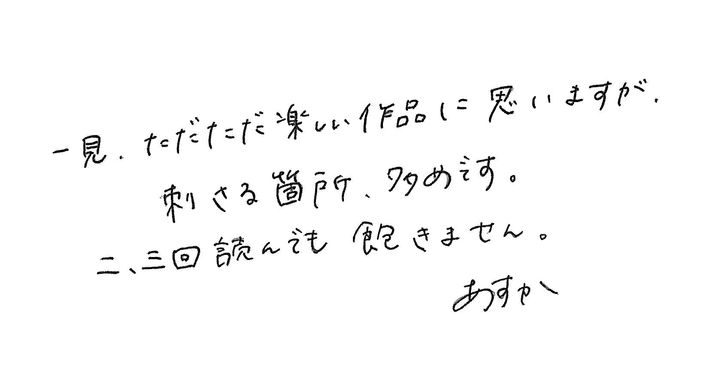 一見、ただただ楽しい作品に思いますが、
刺さる箇所、多めです。
二、三回読んでも飽きません。
あすか